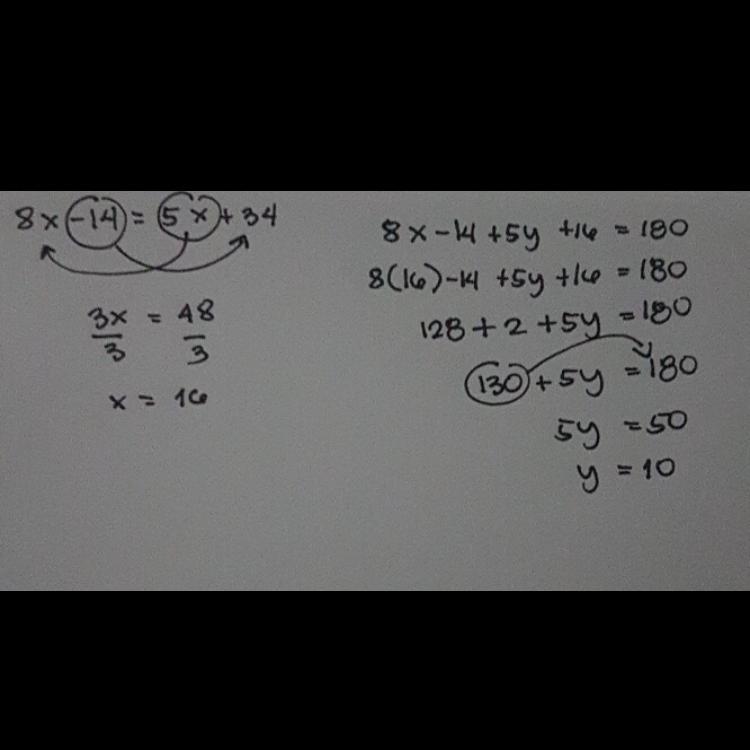 8x -14 = 5x + 34
3x = 48
3 3
x = 16
8x - 14 + 5y + 16 = 180
8(16) - 14 + 5y + 16 = 180
128 + 2 + 5y = 180
130 + 5y = 180
5y = 50
y = 10